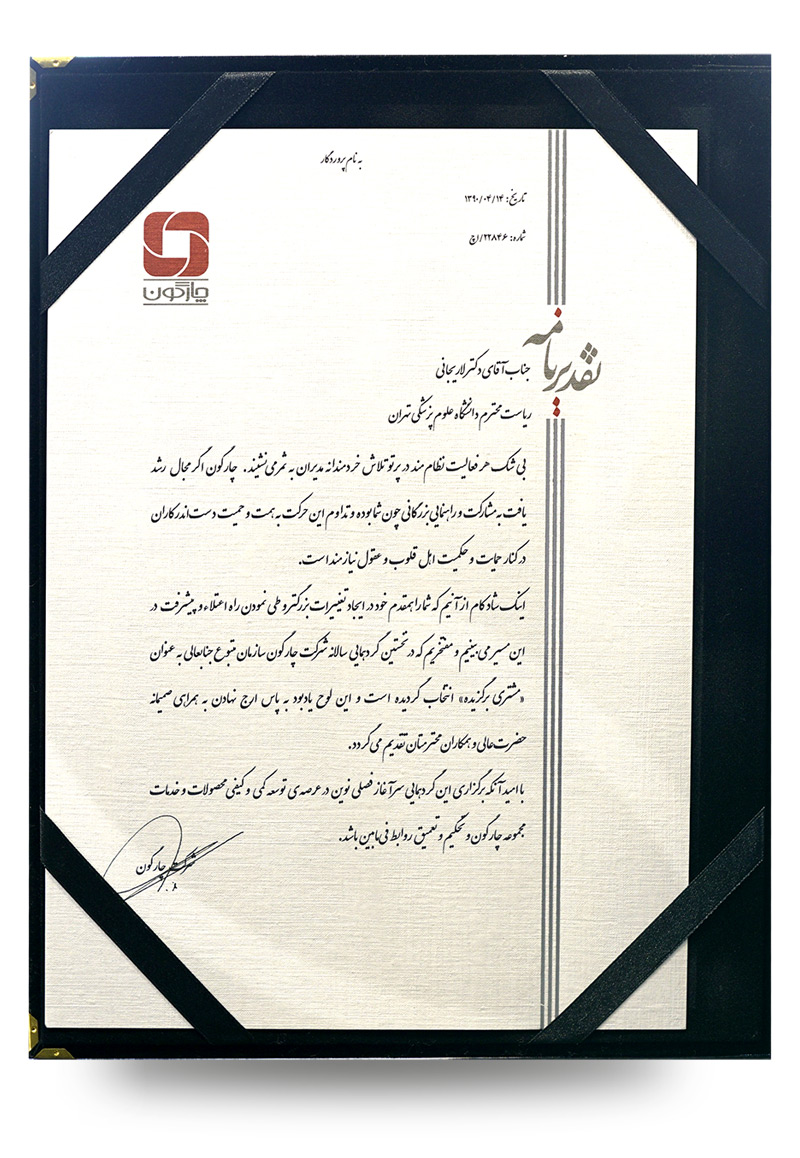 به نام پروردگار
تاریخ: ۱۳۹۰/۰۴/۱۴
شماره: ۲۲۸۴۶/چ
چارگون
تقدیرنامه
جناب آقای دکتر لاریجانی
ریاست محترم دانشگاه علوم پزشکی تهران
بی شک هر فعالیت نظام مند در پرتو تلاش خردمندانه مدیران به ثمر می نشیند. چارگون اگر مجال رشد
یافت به مشارکت و راهنمایی بزرگانی چون شما بوده و تداوم این حرکت به همت و حمیت دست اندرکاران
در کنار حمایت و حکمیت اهل قلوب و عقول نیازمند است.
اینک شادکام از آنیم که شما را همقدم خود در ایجاد تغییرات بزرگتر و طی نمودن راه اعتلاء و پیشرفت در
این مسیر می بینیم و مفتخریم که در نخستین گردهمایی سالانه شرکت چارگون سازمان متبوع جنابعالی به عنوان
«مشتری برگزیده» انتخاب گردیده است و این لوح یادبود به پاس ارج نهادن به همراهی صمیمانه
حضرت عالی و همکاران محترمتان تقدیم می گردد.
با امید آنکه برگزاری این گردهمایی سرآغاز فصلی نوین در عرصه ی توسعه کمی و کیفی محصولات و خدمات
مجموعه چارگون و تحکیم و تعمیق روابط فی مابین باشد.
شرکت چارگون